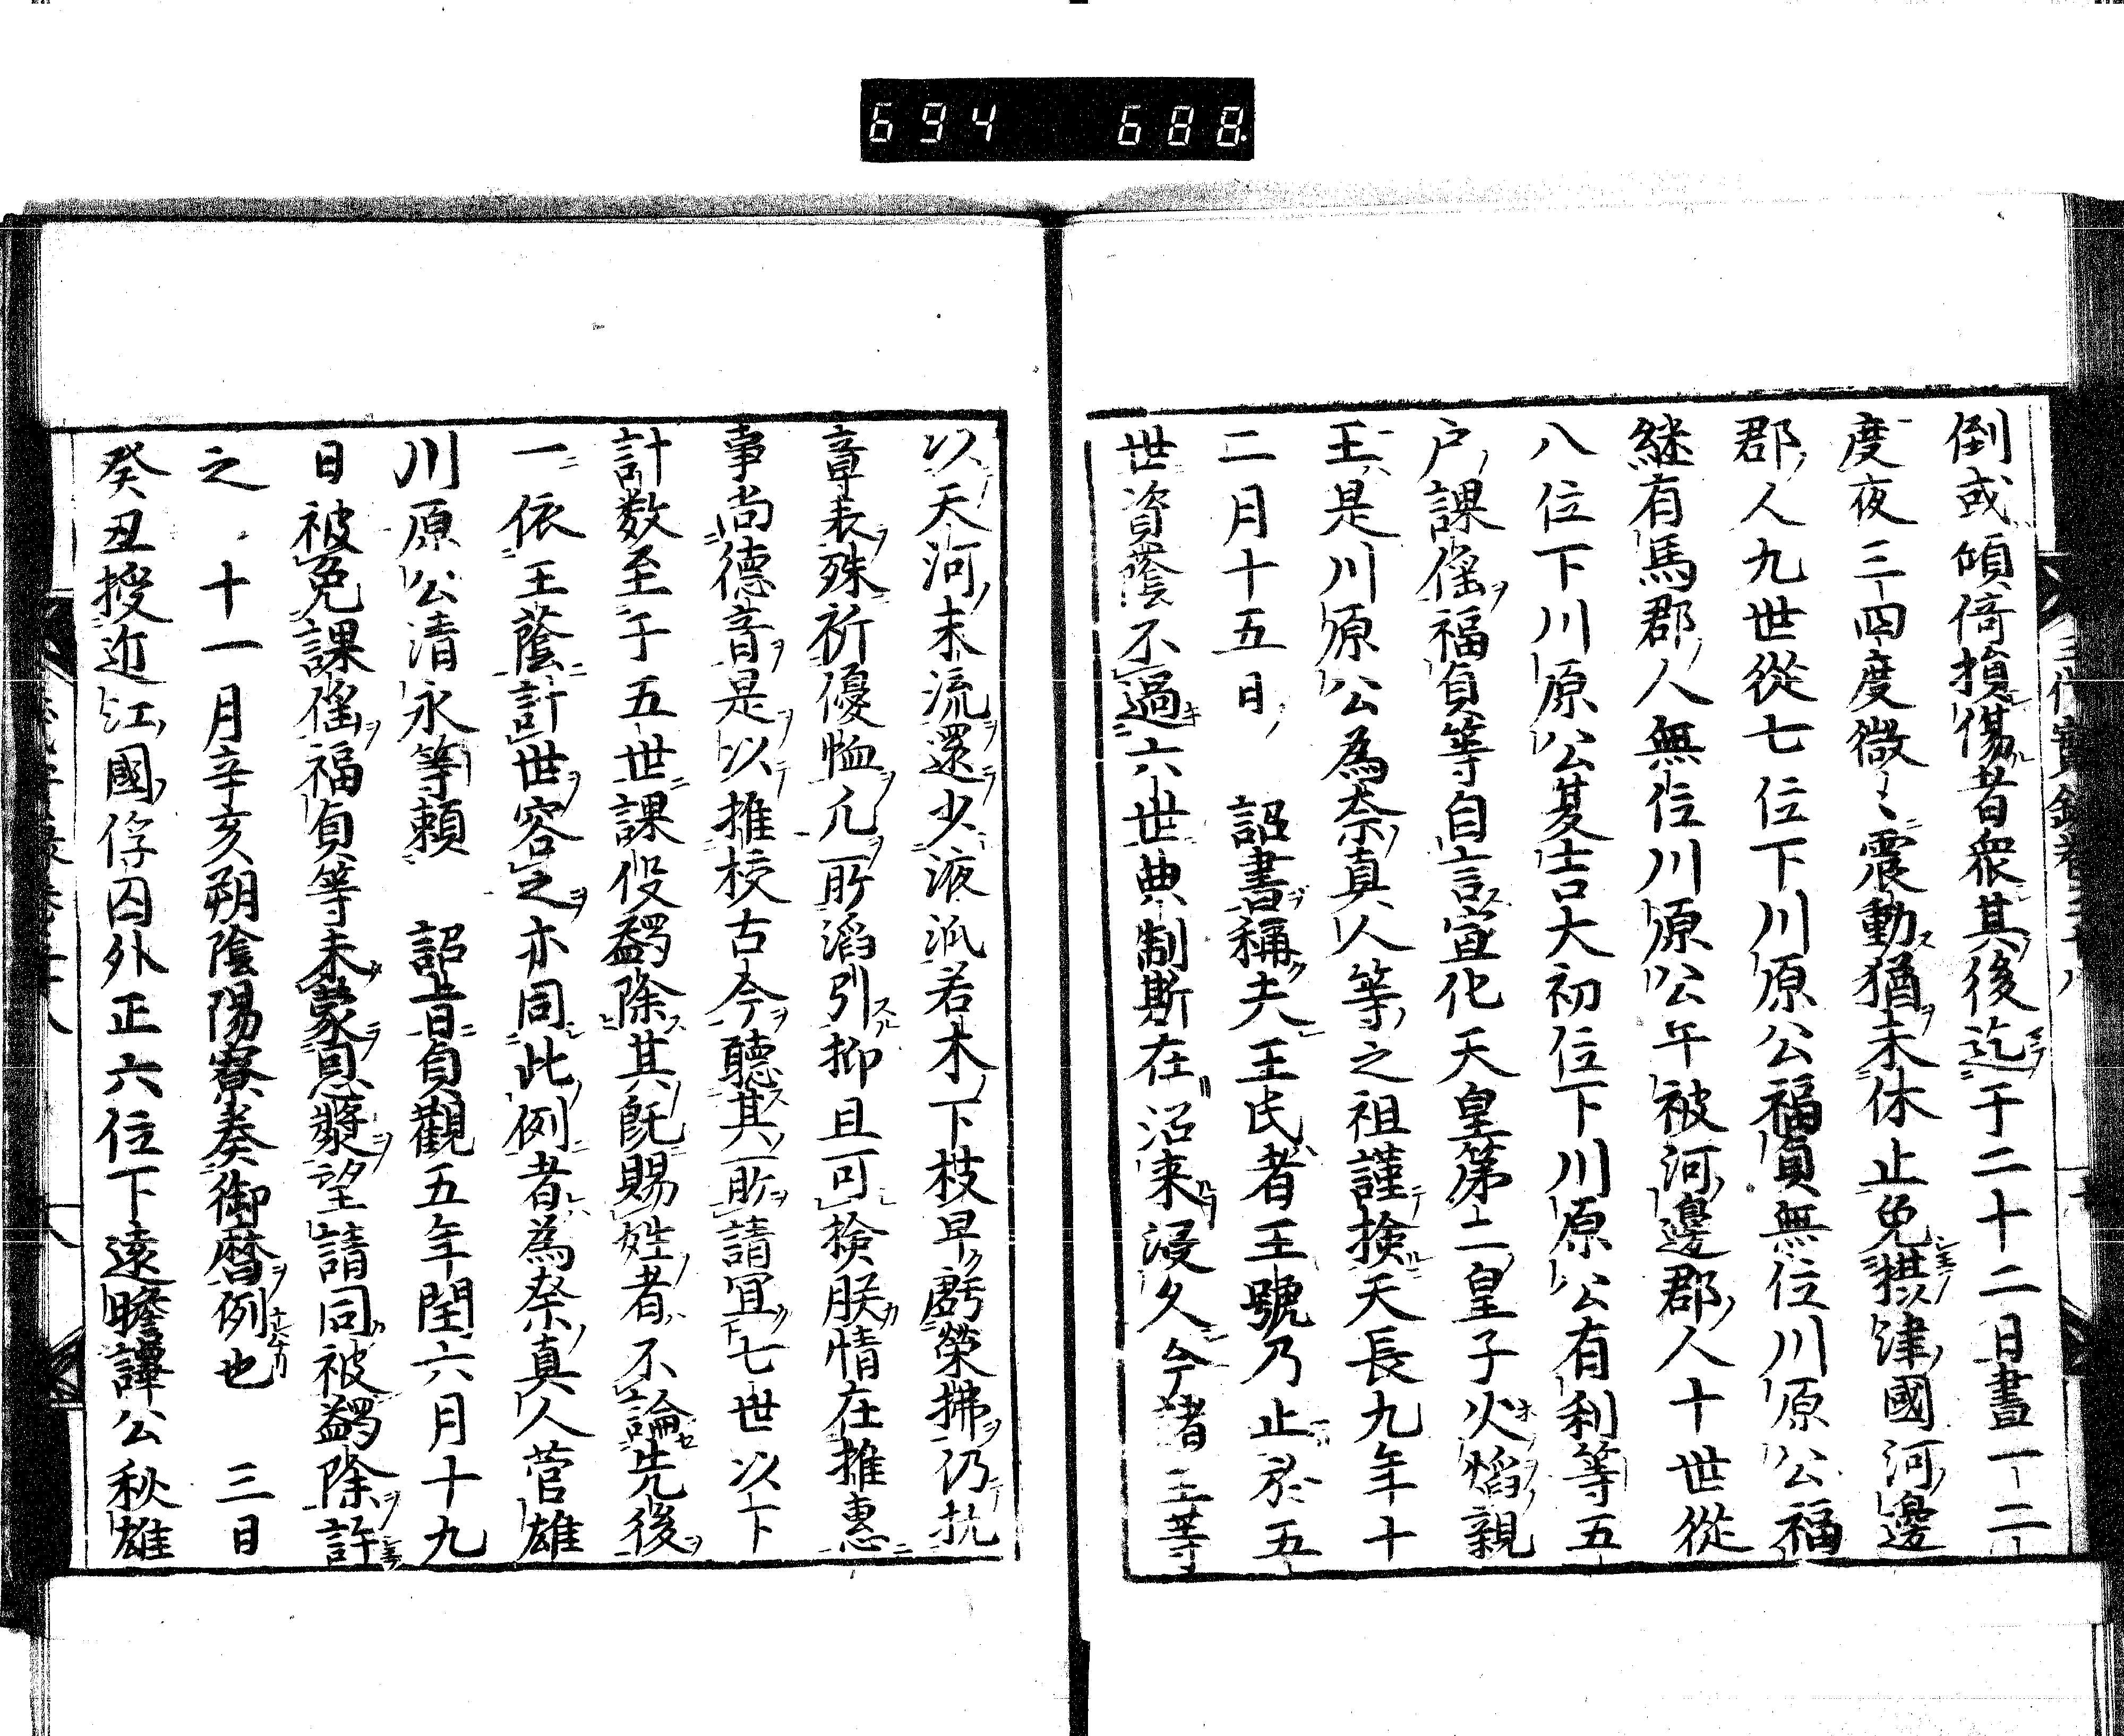 694 688
倒或傾倚損傷者衆其後迄于二十二日晝一二
度夜三四度微々震動猶未休止免攝津國河邊
郡人九世從七位下川原公福貞無位川原公福
継有馬郡人無位川原公午被河邊郡人十世從
八位下川原公夏吉大初位下川原公有利等五
戸課徭福貞等自言宣化天皇第二皇子火焰親
王是川原公為奈真人等之祖謹檢天長九年十
二月十五日詔書稱夫王民者王號乃止於五
世資蔭不過六世典制斯在沿来浸久今諸王等
以天河末流還少液派若木下枝早虧榮拂仍抗
章表殊祈優恤凡所滔引抑且可檢朕情在推惠
事尚德音是以推校古今聽其所請冝七世以下
計数至于五世課役蠲除其既賜姓者不論先後
一依王蔭計世容之亦同此例者為奈真人菅雄
川原公清永等頼詔旨貞觀五年閏六月十九
日被免課徭福貞等未蒙恩奬望請同被蠲除許
之十一月辛亥朔陰陽寮奏御暦例也三日
癸丑授近江國俘囚外正六位下遠瞻譚公秋雄